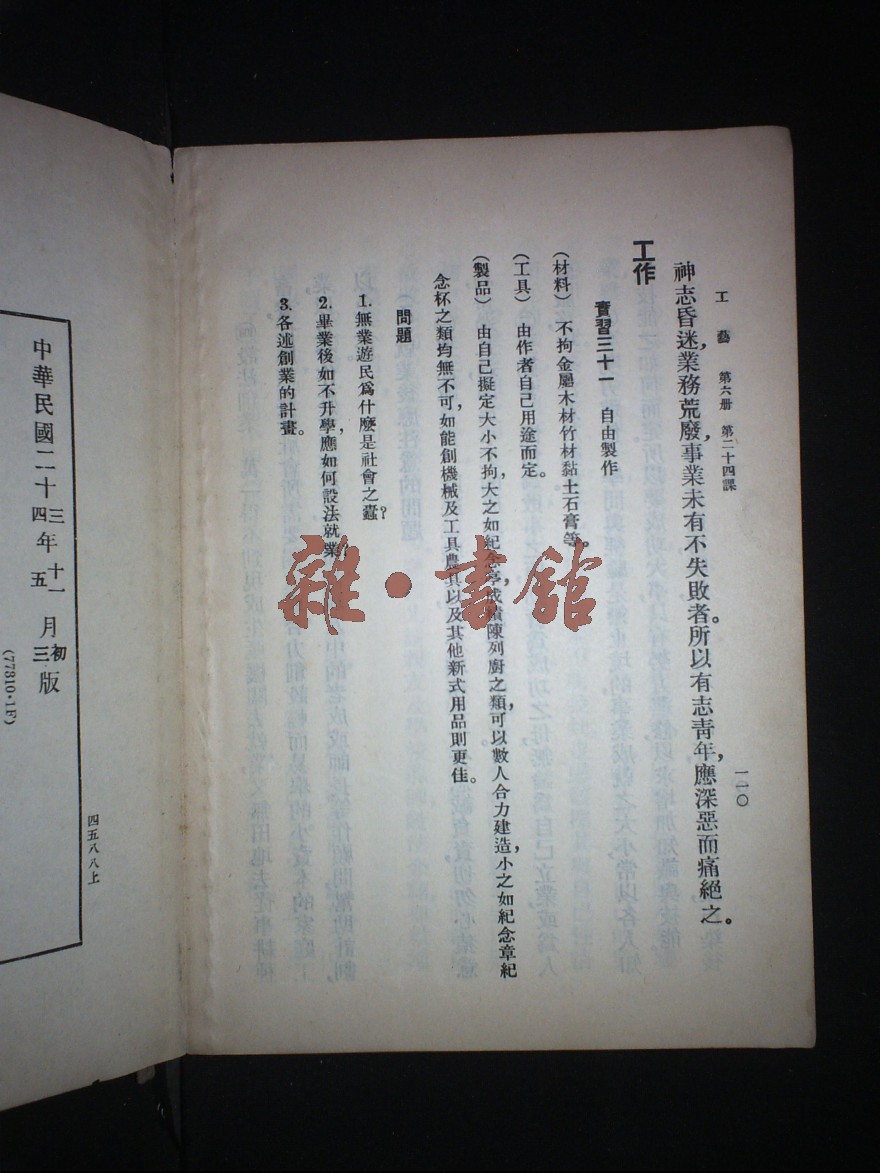 工藝 第六册 第二十四課
一一〇
神志昏迷，業務荒廢，事業未有不失敗者。所以有志青年，應深惡而痛絕之。
工作
實習三十一 自由製作
(材料) 不拘金屬木材竹材黏土石膏等。
(工具) 由作者自己用途而定。
(製品) 由自己擬定大小不拘大之如紀念亭成績陳列廚之類，可以數人合力建造，小之如紀念章紀
念杯之類均無不可，如能創機械及工具農具以及其他新式用品則更佳。
(問題)
1. 無業遊民爲什麽是社會之蠹？
2. 畢業後如不升學，應如何設法就業？
3. 各述創業的計畫。
雜·書館
中華民國二十三年十一月初版
四 五 三
(77810·1F)
四五八八上